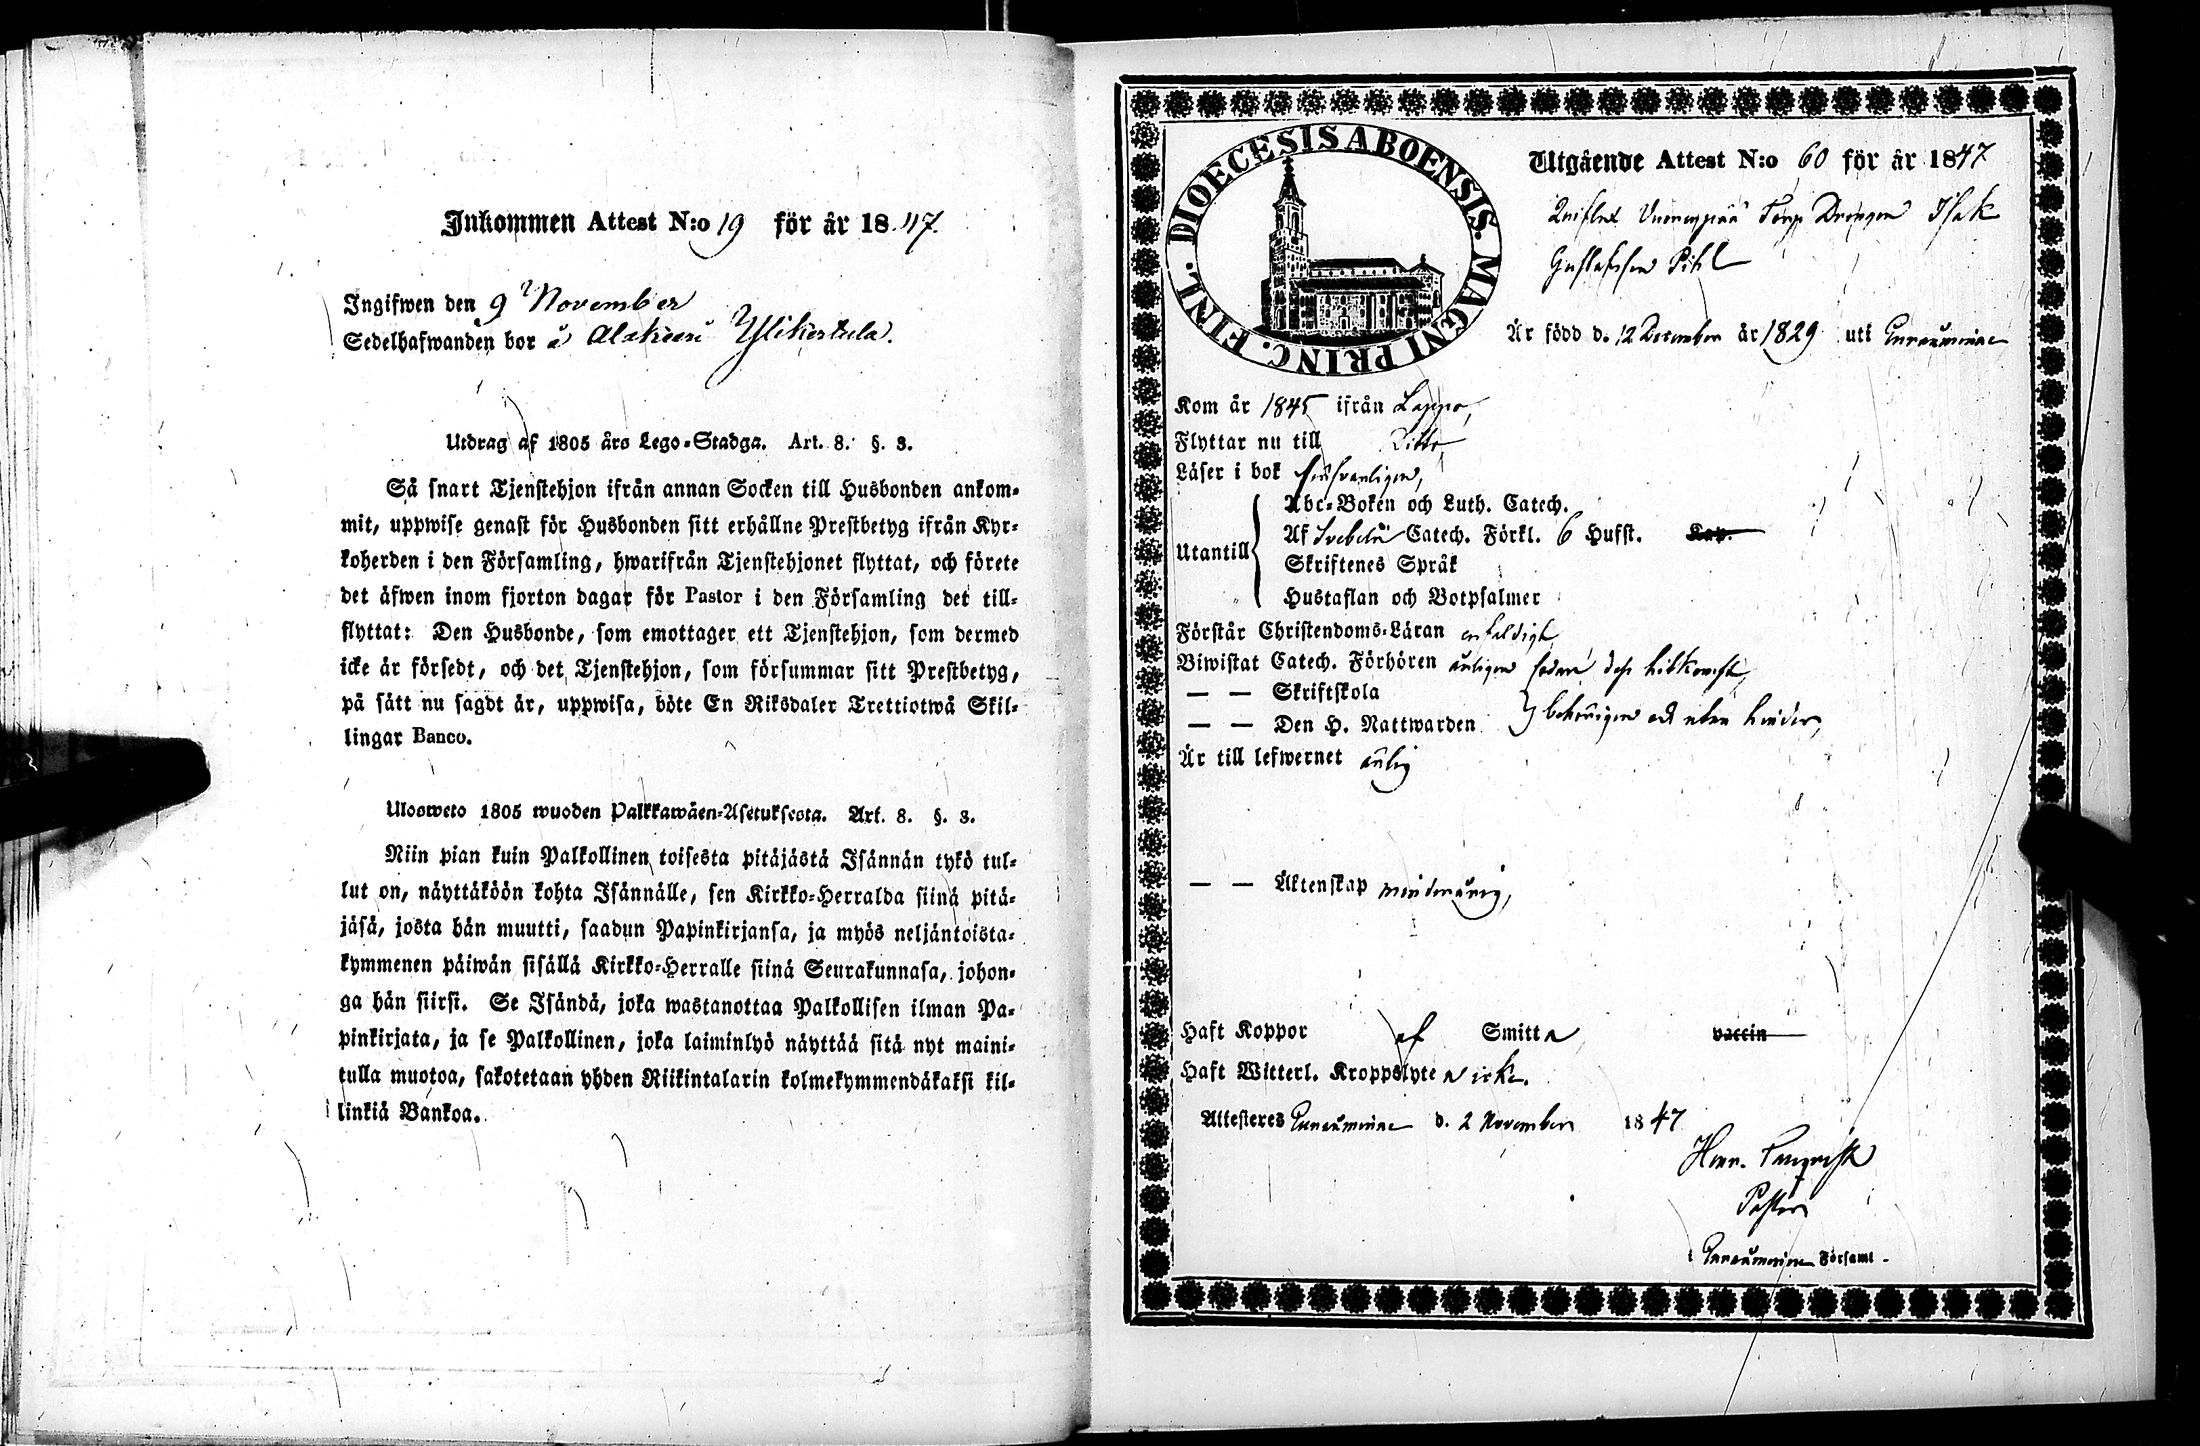 Inkommen Attest N:o 19 för år 1847.
Ingifwen den 9 November
Sedelhafwanden bor å Alakeen Ylikertula.
Utdrag af 1805 års Lego-Stadga. Art. 8. §. 3.
Så snart Tjenstehjon ifrån annan Socken till Husbonden ankom-
mit, uppwise genast för Husbonden sitt erhållne Prestbetyg ifrån Kyr-
koherden i den Församling, hwarifrån Tjenstehjonet flyttat, och förete
det äfwen inom fjorton dagar för Pastor i den Församling det till-
flyttat: Den Husbonde, som emottager ett Tjenstehjon, som dermed
icke är försedt, och det Tjenstehjon, som försummar sitt Prestbetyg,
på sätt nu sagdt är, uppwisa, böte En Riksdaler Trettiotwå Skil-
lingar Banco.
Ulosweto 1805 wuoden Palkkawäen-Asetuksesta. Art. 8. §. 3.
Niin pian kuin Palkollinen toisesta pitäjästä Isännän tykö tul-
lut on, näyttäköön kohta Isännälle, sen Kirkko-Herralda siinä pitä-
jäsä, josta hän muutti, saadun Papinkirjansa, ja myös neljäntoista-
kymmenen päiwän sisällä Kirkko-Herralle siinä Seurakunnasa, johon-
ga hän siirsi. Se Isändä, joka wastanottaa Palkollisen ilman Pa-
pinkirjata, ja se Palkollinen, joka laiminlyö näyttää sitä nyt maini-
tulla muotoa, sakotetaan yhden Riikintalarin kolmekymmendäkaksi kil-
linkiä Bankoa.
DIOECESIS ABOENSIS. MAGNI PRINC. FINL.
Utgående Attest N:o 60 för år 1847
Torp Drängen Isak
Gustafsson Pihl
Är född d. 12 December år 1829 uti
Kom år 1845 ifrån Lappo,
Flyttar nu till
Läser i bok försvarligen,
Abc-Boken och Luth. Catech.
Af Svebelii Catech. Förkl. 6 Hufst. Kap.
Utantill
Skriftenes Språk
Hustaflan och Botpsalmer
Förstår Christendoms-Läran enfaldigt,
Biwistat Catech. Förhören årligen sedan dess hitkomst,
— — Skriftskola
— — Den H. Nattwarden behörigen och utan hinder,
Är till lefwernet ärlig
— — Äktenskap minderårig,
Haft Koppor af Smitta vaccin
Haft Witterl. Kroppslyte icke.
Attesteres d. 2 November 1847
Pastor
i Församl.